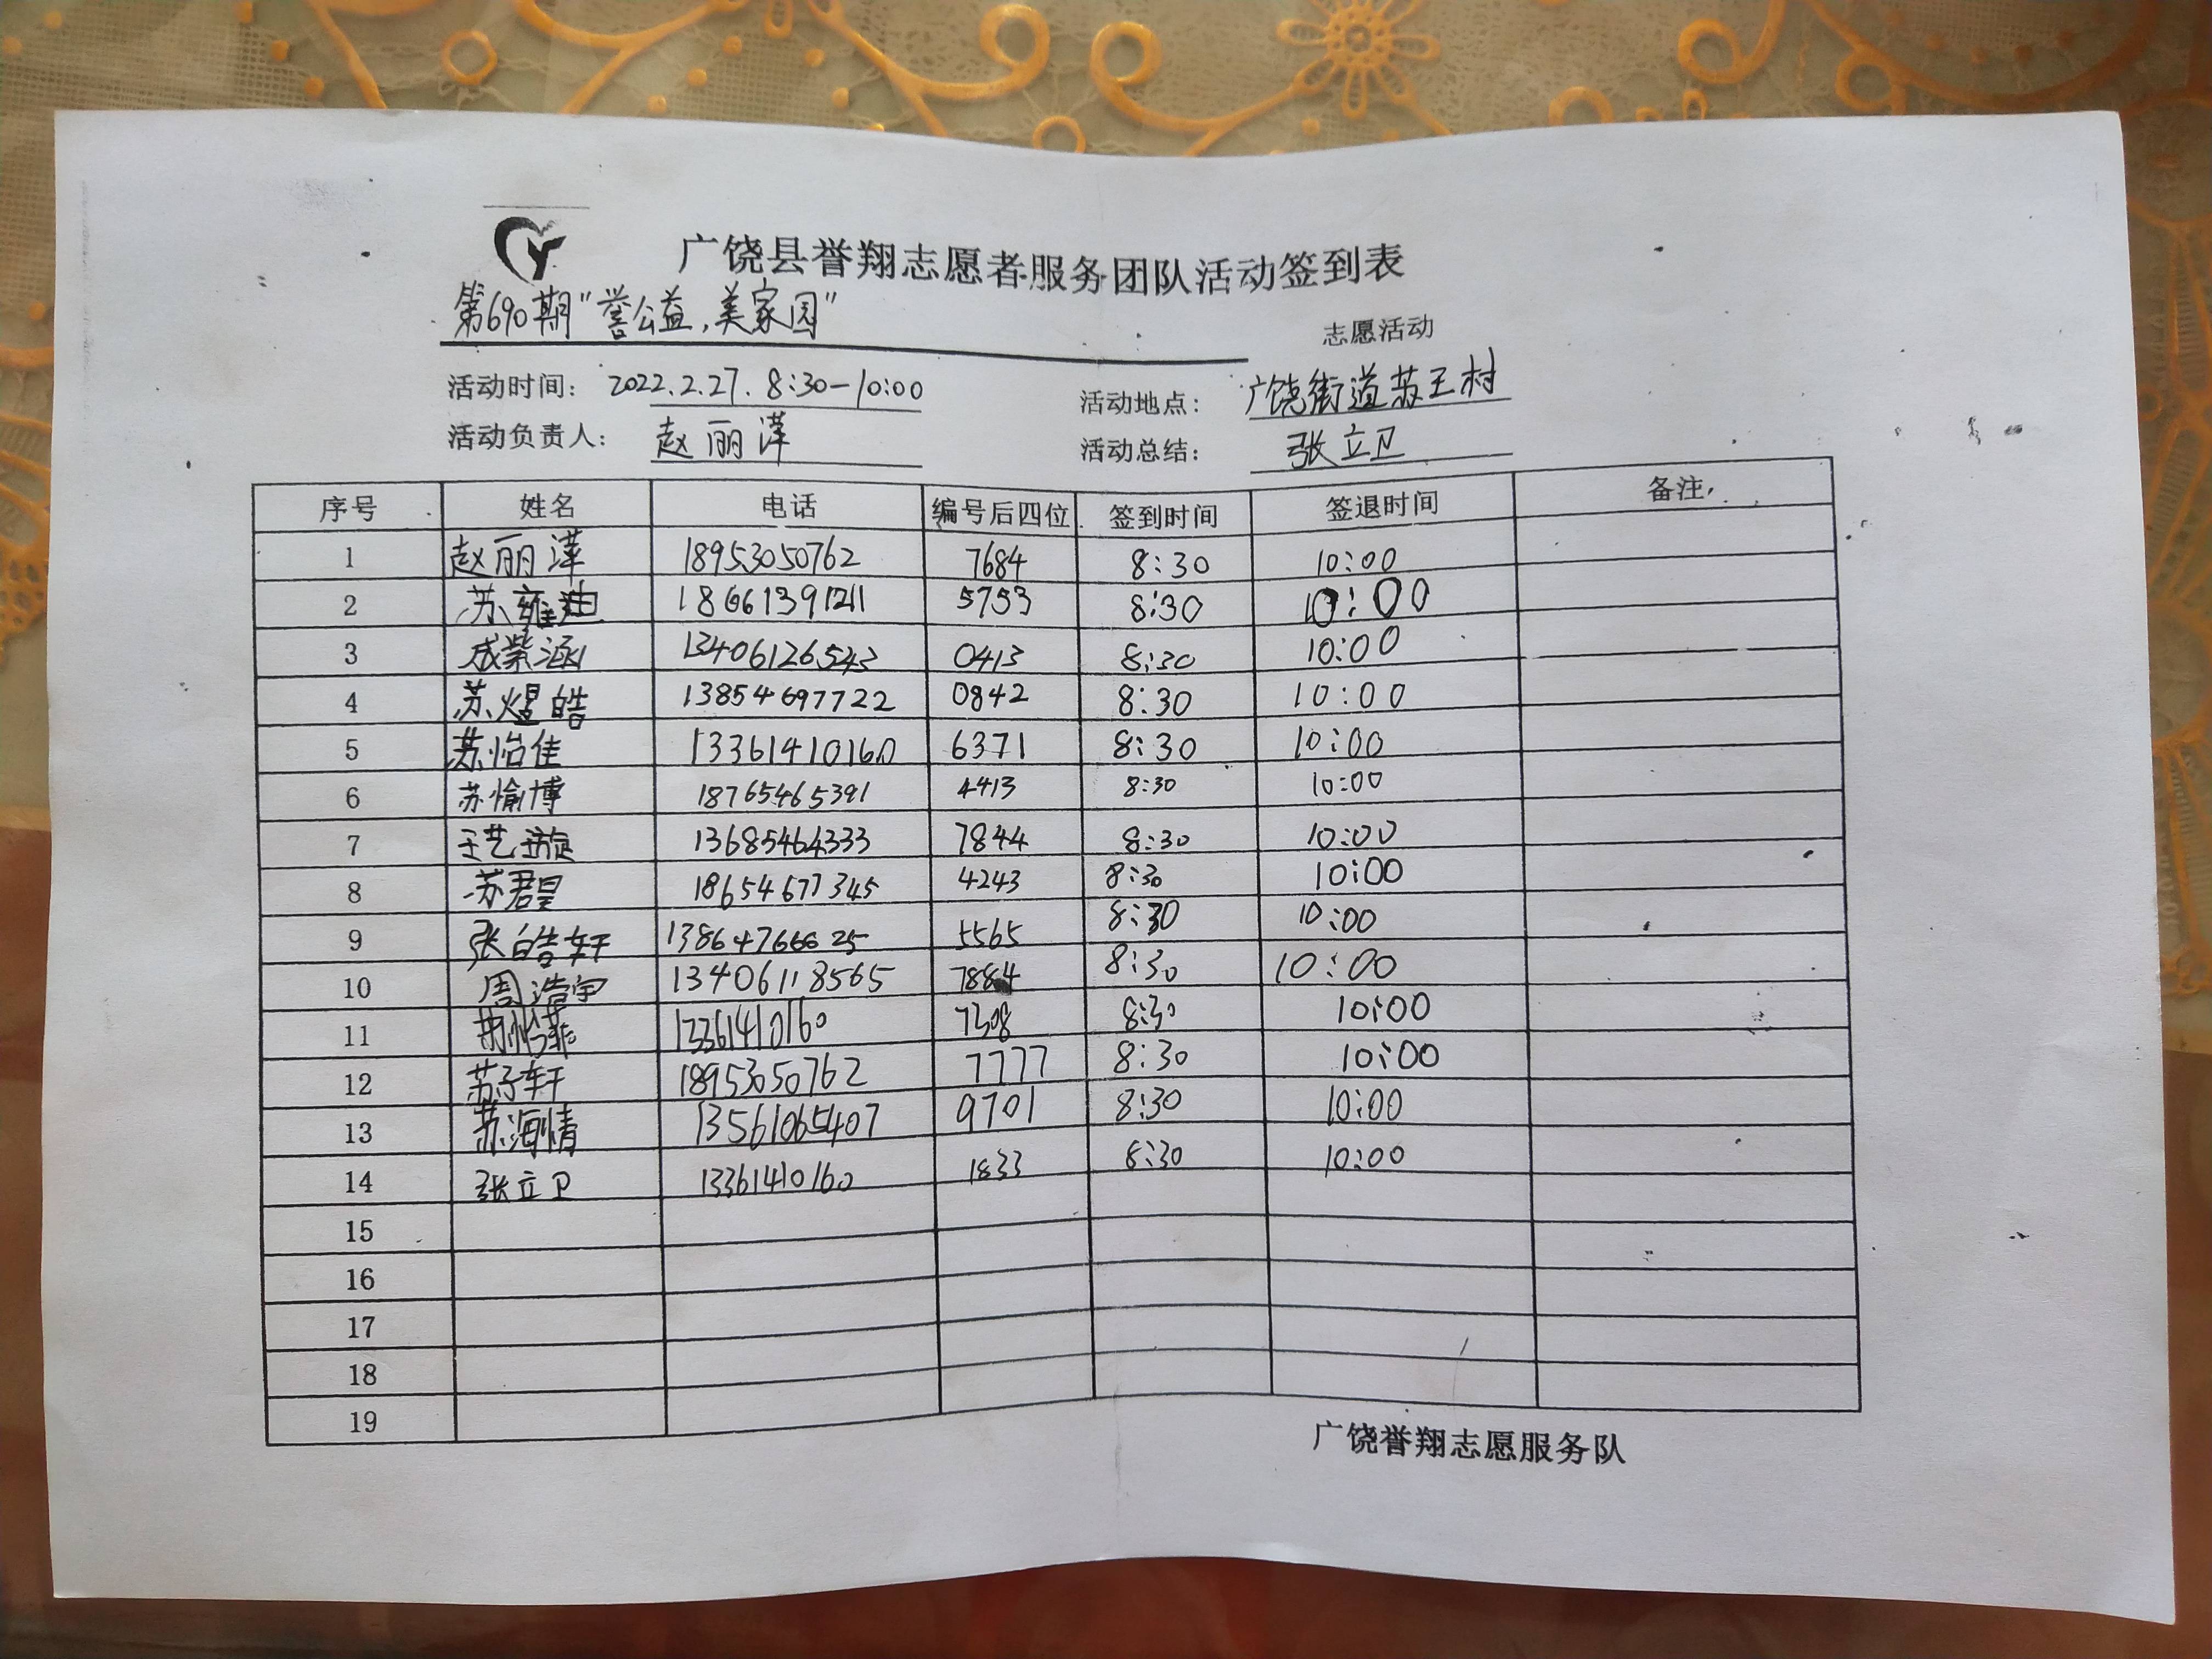 广饶县誉翔志愿者服务团队活动签到表
第690期"誉公益,美家园"
志愿活动
活动时间: 2022.2.27. 8:30-10:00 活动地点: 广饶街道苏王村
活动负责人: 赵丽萍 活动总结: 张立卫
序号 姓名 电话 编号后四位 签到时间 签退时间 备注
1 赵丽萍 18953050762 7684 8:30 10:00
2 苏雍迪 18661391211 5753 8:30 10:00
3 成紫涵 13406126543 0413 8:30 10:00
4 苏煜皓 13854697722 0842 8:30 10:00
5 苏怡佳 13361410160 6371 8:30 10:00
6 苏愉博 18765465391 4413 8:30 10:00
7 王艺璇 13685464333 7844 8:30 10:00
8 苏君昊 18654677345 4243 8:30 10:00
9 张皓轩 13864766625 5565 8:30 10:00
10 周浩宇 13406118565 7884 8:30 10:00
11 13361410160 7308 8:30 10:00
12 苏子轩 18953050762 7777 8:30 10:00
13 苏海情 13561065407 9701 8:30 10:00
14 张立卫 13361410160 1833 8:30 10:00
15
16
17
18
19
广饶誉翔志愿服务队